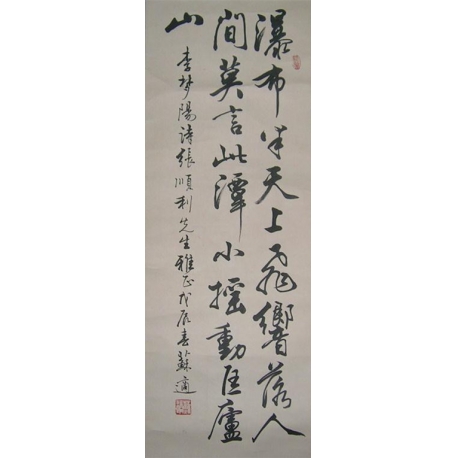 瀑布半天上飛響落人
間莫言此潭小搖動匡廬
山
李梦陽诗張順利先生雅正戊辰春蘇適